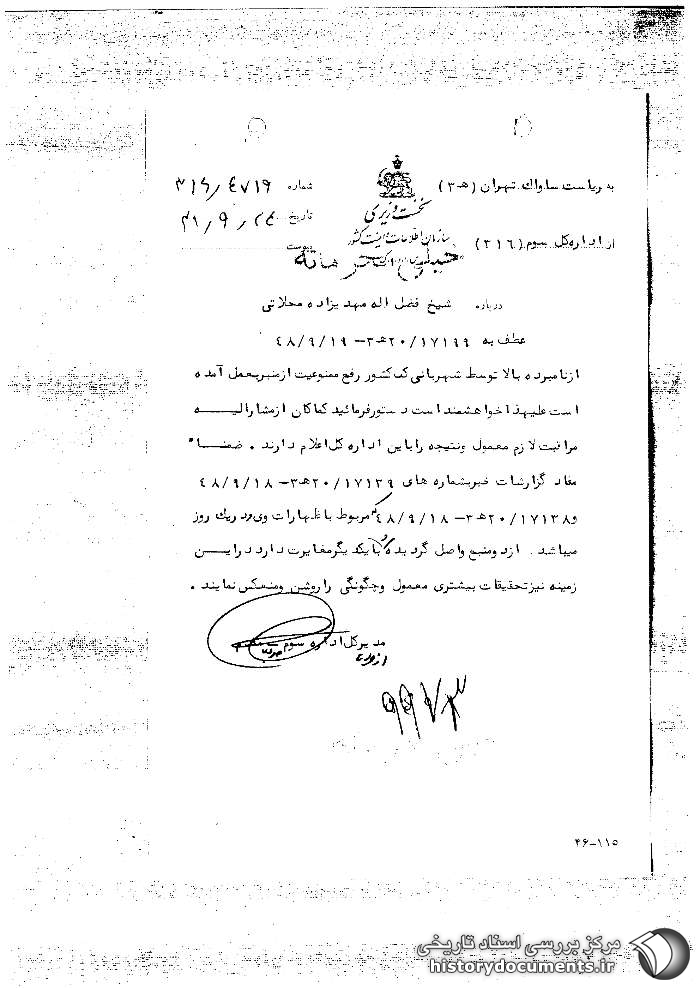 به ریاست ساواك تهران (ه‍ ۳)
از اداره کل سوم (۳۱۶)
نخست وزیری
سازمان اطلاعات و امنیت کشور
شماره ۳۱۶/۴۷۱۶
تاریخ
پیوست
درباره شیخ فضل اله مهدیزاده محلاتی
عطف به ۲۰/۱۷۱۹۹ه‍ ۳-۴۸/۹/۱۹
ازنامبرده بالا توسط شهربانی کل کشور رفع ممنوعیت ازمنبربعمل آمده
است علیهذا خواهشمند است دستورفرمائید کماکان ازمشارالیه
مراقبت لازم معمول ونتیجه راباین اداره کل اعلام دارند . ضمناً
مفاد گزارشات خبربشماره های ۲۰/۱۷۱۳۹ه‍ ۳-۴۸/۹/۱۸
و۲۰/۱۷۱۳۸ه‍ ۳-۴۸/۹/۱۸ که مربوط باظهارات وی در یك روز
میباشد . ازدومنبع واصل گردیده و بایکدیگرمغایرت دارد دراین
زمینه نیزتحقیقات بیشتری معمول وچگونگی راروشن ومنعکس نمایند .
مدیرکل اداره سوم
۴۶-۱۱۵
مرکز بررسی اسناد تاریخی
historydocuments.ir